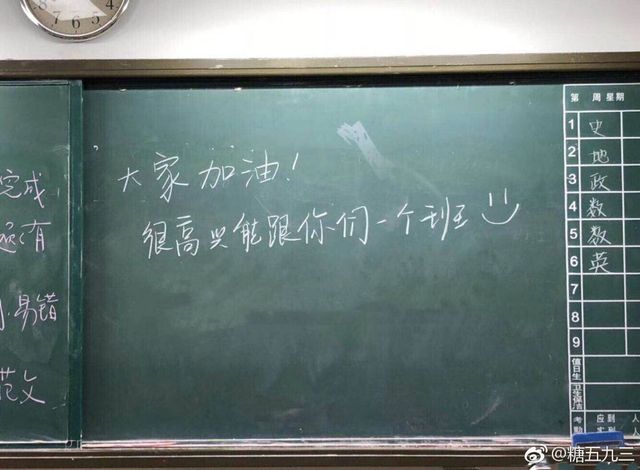 7 6 5 4
完成
有
易错
范文
大家加油!
很高兴能跟你们一个班
第 周 星期
1 史
2 地
3 政
4 数
5 数
6 英
7
8
9
值日生
卫生保洁
考勤 应到 人
实到 人
@糖五九三